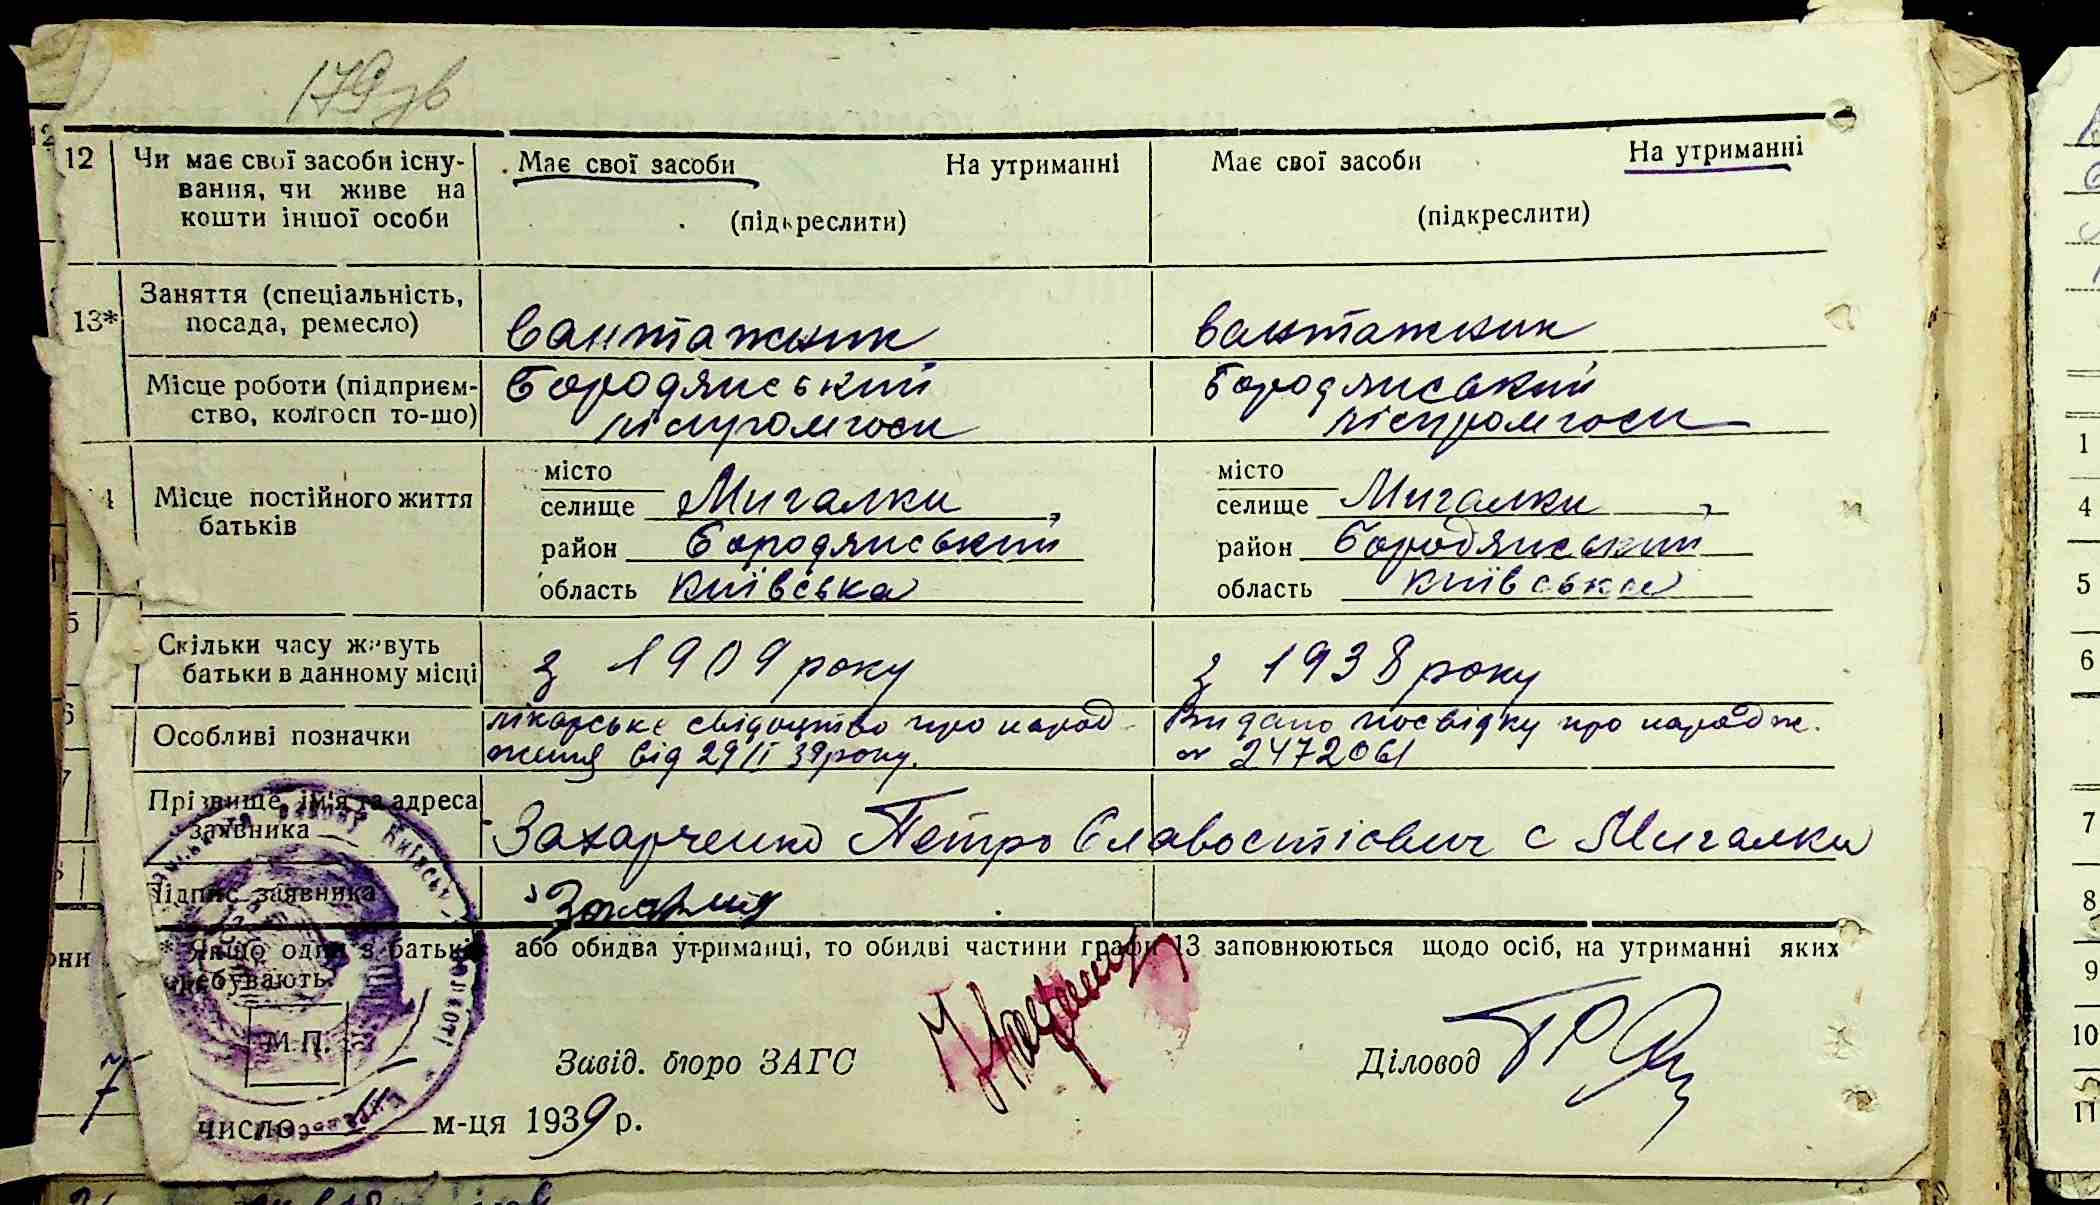 179 зв
12 Чи має свої засоби існу- Має свої засоби На утриманні Має свої засоби На утриманні
вання, чи живе на
кошти іншої особи (підкреслити) (підкреслити)
13* Заняття (спеціальність,
посада, ремесло) вантажник вантажник
Місце роботи (підприєм- Бородянський Бородянський
ство, колгосп то-що) ліспромгосп ліспромгосп
місто місто
Місце постійного життя селище Мигалки, селище Мигалки,
батьків район Бородянський район Бородянський
область Київська область Київська
Скільки часу живуть
батьки в данному місці з 1909 року з 1938 року
лікарське свідоцтво про народ- Видано посвідку про народж.
Особливі позначки ження від 29/І 39 року. № 2472061
Прізвище, ім'я та адреса
заявника Захарченко Петро Славостіович с Мигалки
Підпис заявника
* Якщо один з батьків або обидва утриманці, то обидві частини графи 13 заповнюються щодо осіб, на утриманні яких
перебувають.
М.П.
Завід. бюро ЗАГС Діловод
число м-ця 1939 р.